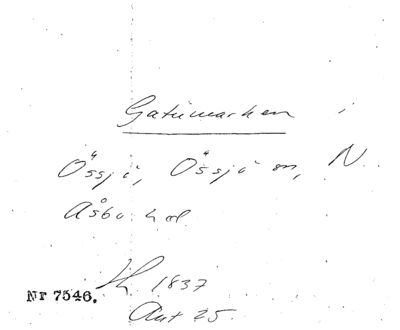 Gatumarken i
Össjö, Össjö sn, N.
Åsbo hd
Nr 7546.
1837
Akt 25.